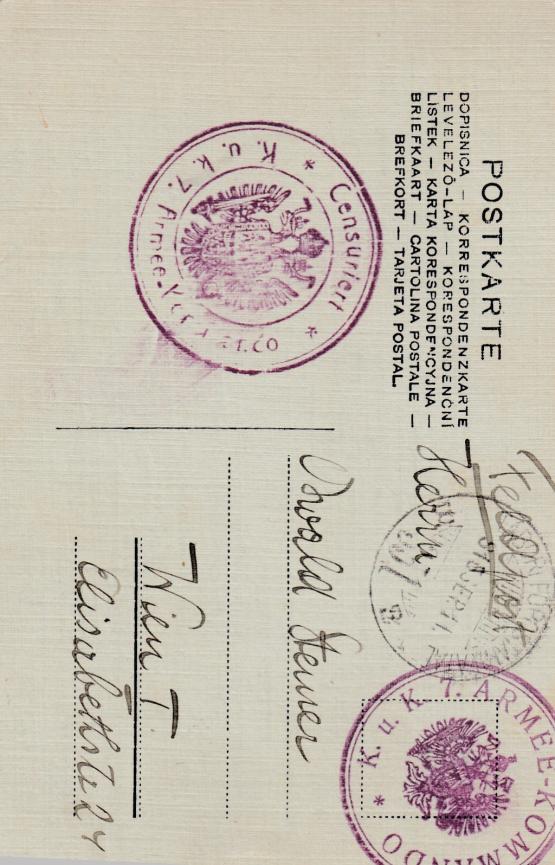 POSTKARTE
DOPISNICA — KORRESPONDENZKARTE
LEVELEZŐ-LAP — KORESPONDENČNÍ
LÍSTEK — KARTA KORESPONDENCYJNA —
BRIEFKAART — CARTOLINA POSTALE —
BREFKORT — TARJETA POSTAL.
* Censuriert *
K. u. k. 7. Armee-
Feldpost
Herrn
Oswald Steiner
Wien I.
Elisabethstr 24
* K. u. K. 7. ARMEE-KOMMANDO